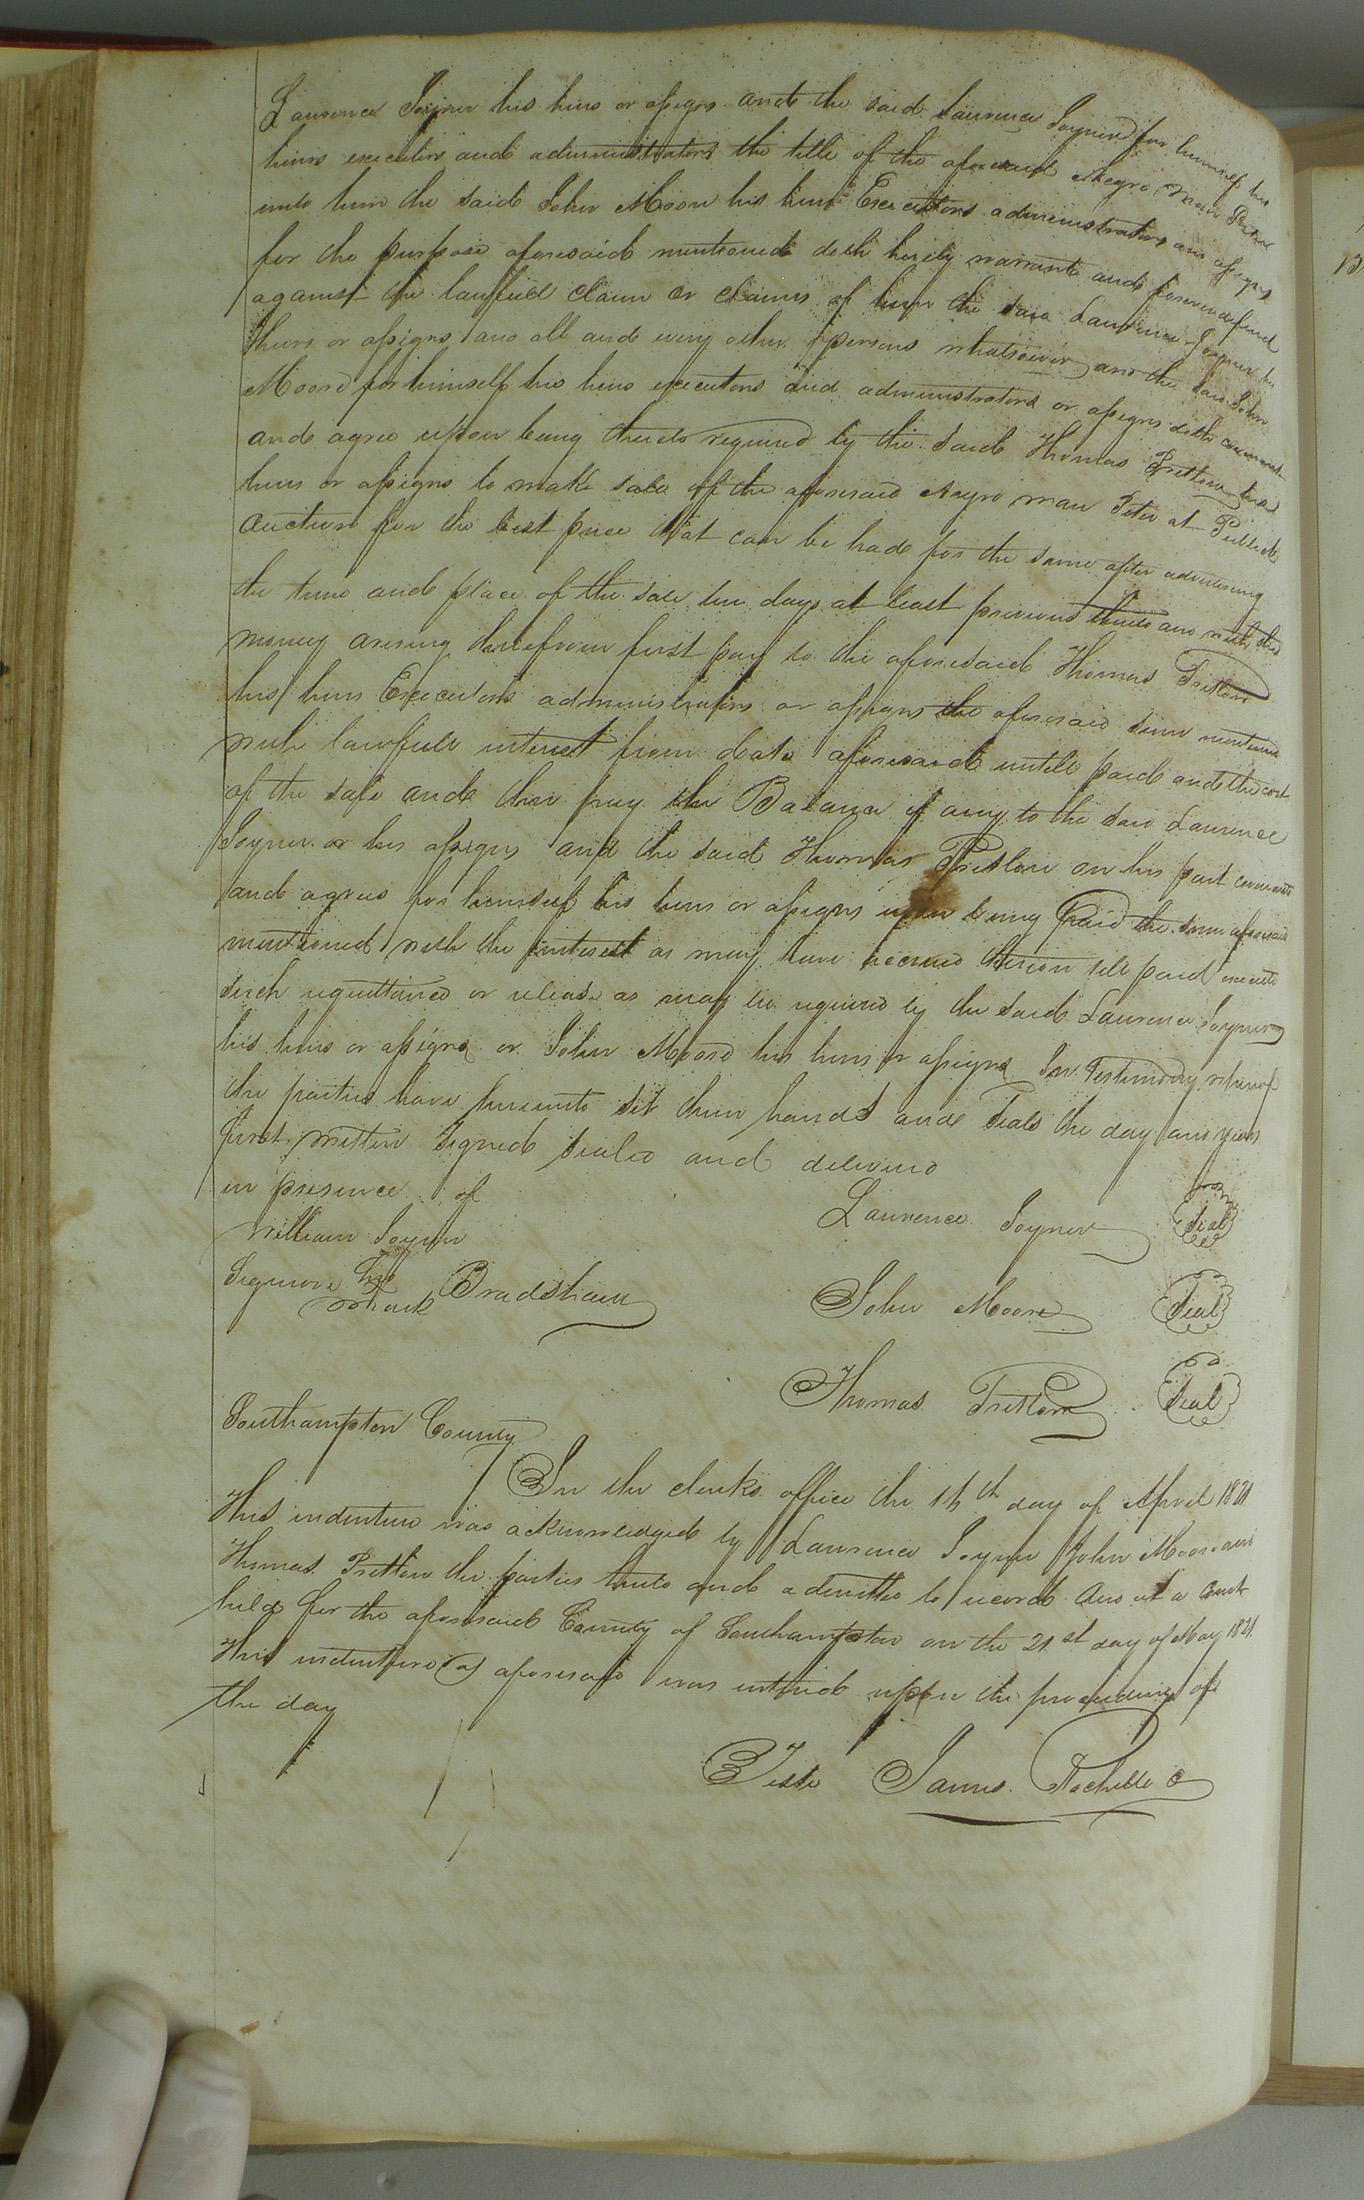 Laurence Joyner his heirs or assigns and the said Laurence Joyner for himself his
heirs executors and administrators the title of the aforesaid Negro man Peter
unto him the said John Moore his heirs Executors administrators and assigns
for the purpose aforesaid mentioned doth hereby warrant and forever defend
against the lawfull claim or claims of him the said Laurence Joyner his
heirs or assigns and all and every other persons whatsoever and the said John
Moore for himself his heirs executors and administrators or assigns doth covenant
and agree upon being thereto required by the said Thomas Pretlow his
heirs or assigns to make sale of the aforesaid Negro man Peter at Publick
auction for the best price that can be had for the same after advertising
the time and place of the sale ten days at least previous thereto and with the
money arising therefrom first pay to the aforesaid Thomas Pretlow
his heirs Executors administrators or assigns the aforesaid sum mentioned
with lawfull interest from date aforesaid untill paid and the cost
of the sale and then pay the Balance if any to the said Laurence
Joyner or his assigns and the said Thomas Pretlow on his part covenants
and agrees for himself his heirs or assigns upon being paid the sum aforesaid
mentioned with the interest as may have accrued thereon till paid execute
such acquittance or release as may be required by the said Laurence Joyner
his heirs or assigns or John Moore his heirs or assigns In Testimony whereof
the parties have hereunto set their hands and seals the day and year
first written Signed sealed and delivered
in presence of
William Joyner Laurence Joyner Seal
his
mark Bradshaw John Moore Seal
Thomas Pretlow Seal
Southampton County
In the clerks office the day of April 1821
This indenture was acknowledged by Laurence Joyner John Moore and
Thomas Pretlow the parties thereto and admitted to record And at a Court
held for the aforesaid County of Southampton on the 21st day of May 1821
This indenture as aforesaid was entered upon the proceedings of
the day
Teste James Rochelle C